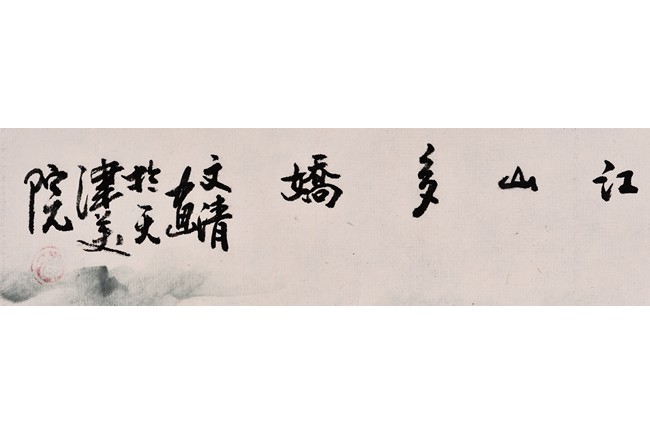 江山多嬌
文清
畫
於天
津美
院